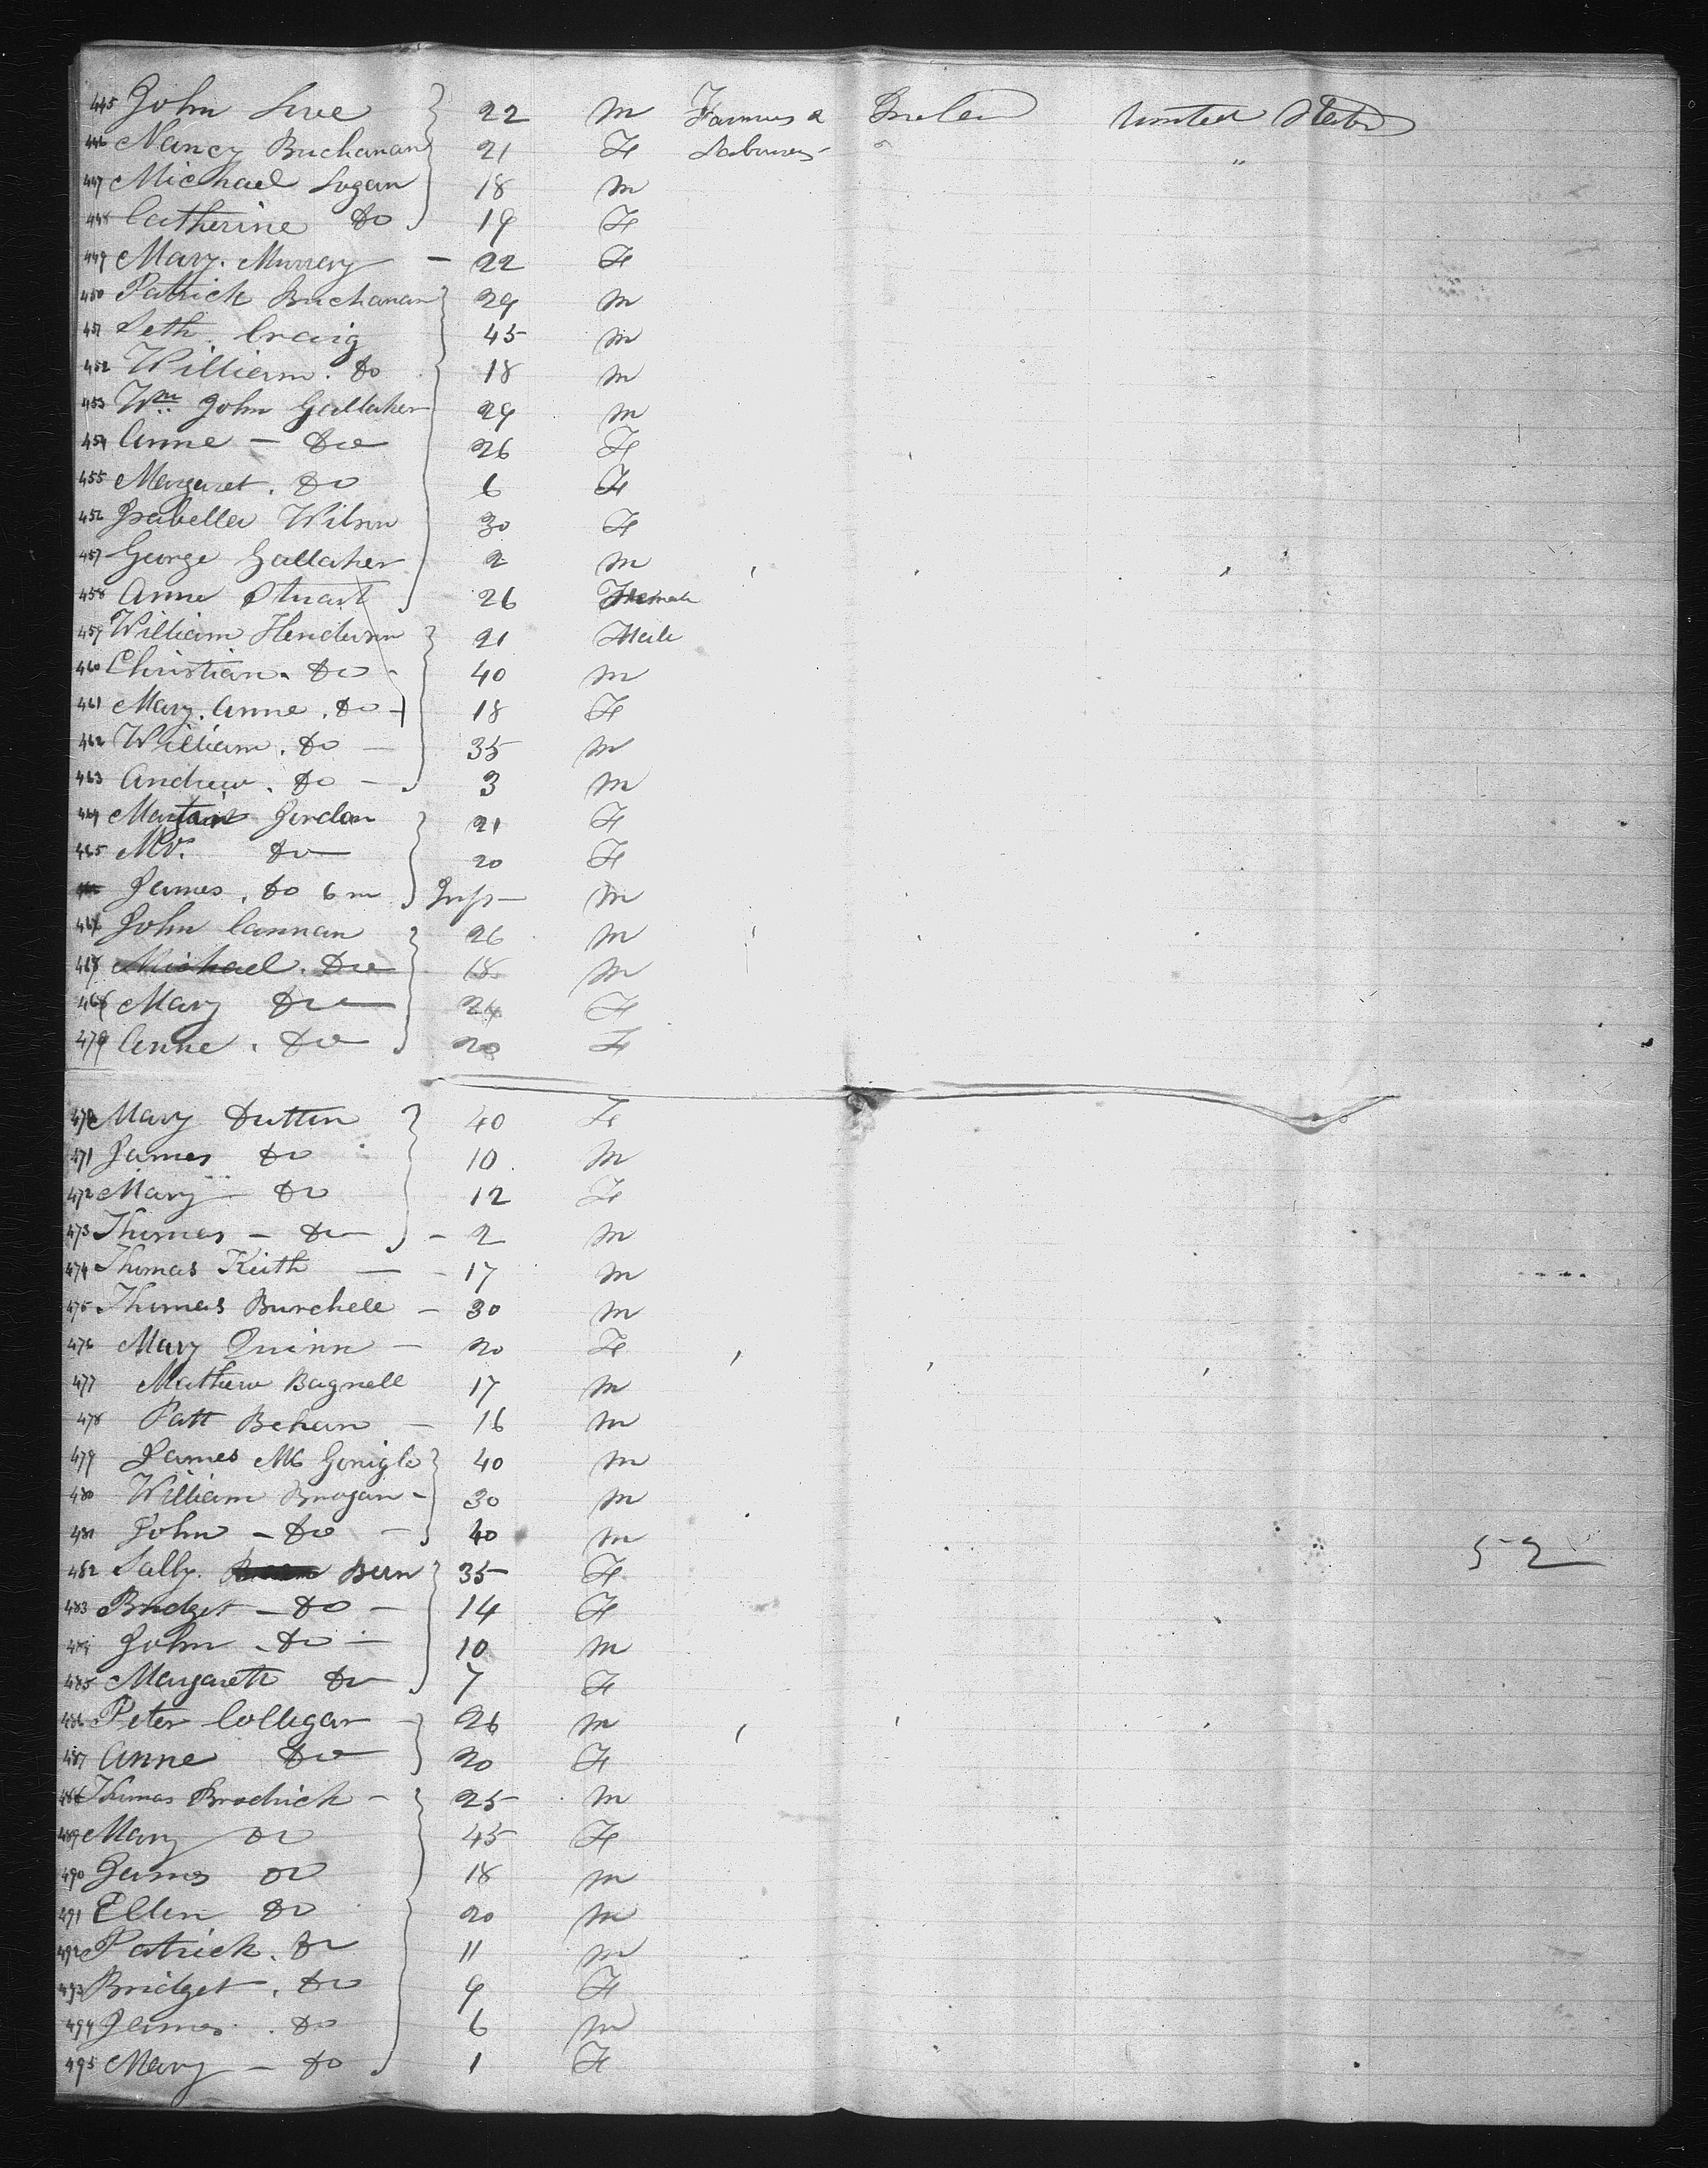 445 John Love } 22 M Farmers & Ireland United States
446 Nancy Buchanan 21 F Labourers " "
447 Michael Logan 18 M
448 Catherine Do 19 F
449 Mary. Murray - 22 F
450 Patrick Buchanan } 29 M
451 Seth. Craig 45 M
452 William. Do 18 M
453 Wm John Gallaher 29 M
454 Anne - Do 26 F
455 Margaret. Do 6 F
456 Isabella Wilson 30 F
457 George Gallaher 2 M
458 Anne Stuart 26 Female
459 William Henderson } 21 Male
460 Christian. Do - 40 M
461 Mary. Anne. Do - 18 F
462 William. Do - 35 M
463 Andrew. Do - 3 M
464 Jordan } 21 F
465 Do 20 F
James. Do 6 m Inf - M
John Cannan } 26 M
Michael. Do 18 M
Mary Do 24 F
Anne. Do 20 F
470 Mary Dutton } 40 F
471 James Do 10 M
472 Mary - Do 12 F
473 Thomas - Do - 2 M
474 Thomas Keith - - 17 M
475 Thomas Burchell - 30 M
476 Mary Quinn - 20 F
477 Mathew Bagnell 17 M
478 Patt Behan - 16 M
479 James Mc Gonigle } 40 M
480 William Brogan - 30 M
481 John - Do - 40 M 52
482 Sally. Burn } 35 F
483 Bridget - Do - 14 F
484 John - Do - 10 M
485 Margarett Do 7 F
486 Peter Colligan - } 26 M
487 Anne Do 20 F
488 Thomas Brodrick - } 25 M
489 Mary Do 45 F
490 James Do 18 M
491 Ellen Do 20 M
492 Patrick. Do 11 M
493 Bridget. Do 9 F
494 James. Do 6 M
495 Mary - Do 1 F